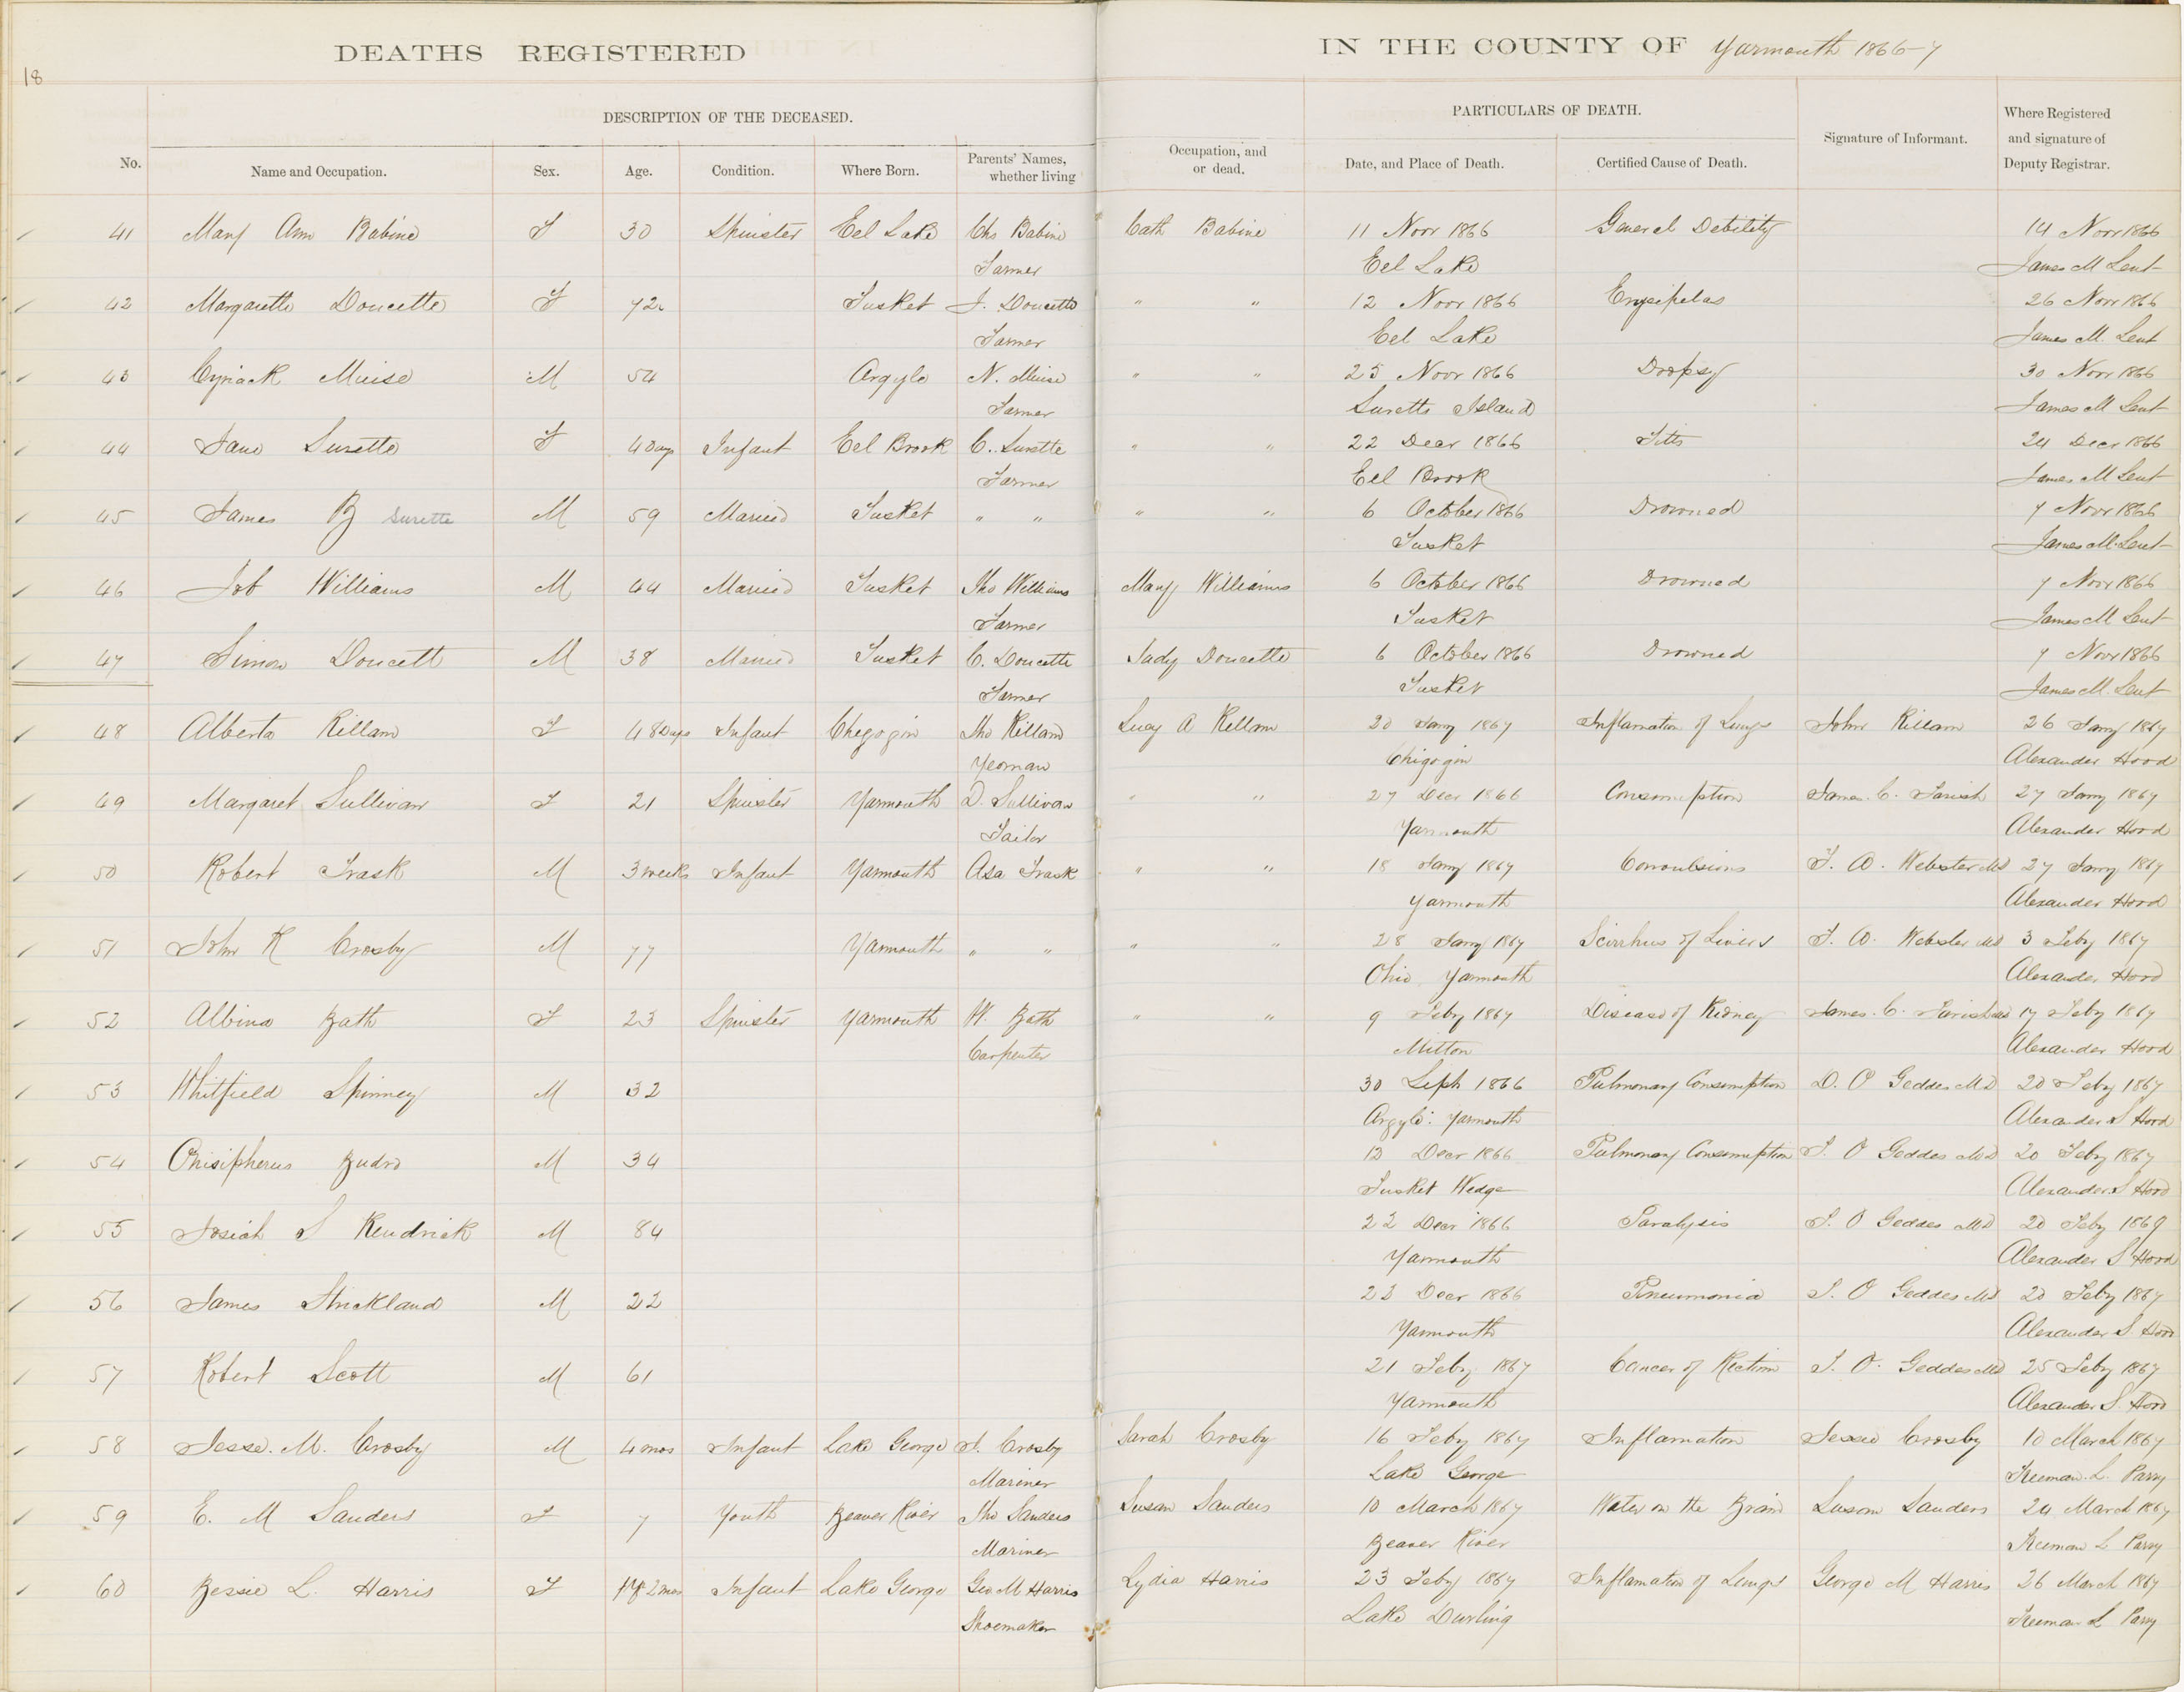 DEATHS REGISTERED IN THE COUNTY OF Yarmouth 1866-7
18
DESCRIPTION OF THE DECEASED. PARTICULARS OF DEATH.
No. Name and Occupation. Sex. Age. Condition. Where Born. Parents' Names, whether living Occupation, and or dead. Date, and Place of Death. Certified Cause of Death. Signature of Informant. Where Registered and signature of Deputy Registrar.
41 Mary Ann Babine F 30 Spinster Eel Lake Chs Babine Cath Babine 11 Novr 1866 General Debility 14 Novr 1866
Farmer Eel Lake James M Lent
42 Margarette Doucette F 72 Tusket J. Doucette " " 12 Novr 1866 Erysipelas 26 Novr 1866
Farmer Eel Lake James M. Lent
43 Cyriack Muise M 54 Argyle N. Muise " " 25 Novr 1866 Dropsy 30 Novr 1866
Farmer Surette Island James M Lent
44 Jane Surette F 4 Days Infant Eel Brook C. Surette " " 22 Decr 1866 Fitts 24 Decr 1866
Farmer Eel Brook James M Lent
45 James B Surette M 59 Married Tusket " " " " 6 October 1866 Drowned 7 Novr 1866
Tusket James M. Lent
46 Job Williams M 44 Married Tusket Jno Williams Mary Williams 6 October 1866 Drowned 7 Novr 1866
Farmer Tusket James M Lent
47 Simon Doucett M 38 Married Tusket C. Doucette Judy Doucette 6 October 1866 Drowned 7 Novr 1866
Farmer Tusket James M. Lent
48 Alberta Killam F 48 Days Infant Chegogin Jno Killam Lucy A Killam 20 Jany 1867 Inflamation of Lungs John Killam 26 Jany 1867
Yeoman Chigogin Alexander Hood
49 Margaret Sullivan F 21 Spinster Yarmouth D. Sullivan " " 27 Decr 1866 Consumption James. C. Farish 27 Jany 1867
Tailor Yarmouth Alexander Hood
50 Robert Trask M 3 weeks Infant Yarmouth Asa Trask " " 18 Jany 1867 Convulsions F. A. Webster Md 27 Jany 1867
Yarmouth Alexander Hood
51 John K Crosby M 77 Yarmouth " " " " 28 Jany 1867 Scirrhus of Livers F. A. Webster Md 3 Feby 1867
Ohio Yarmouth Alexander Hood
52 Albina Bath F 23 Spinster Yarmouth W. Bath " " 9 Feby 1867 Disease of Kidney James. C. Farish Md 17 Feby 1867
Carpenter Milton Alexander Hood
53 Whitfield Spinney M 32 30 Seph 1866 Pulmonary Consumption O Geddes MD 20 Feby 1867
Argyle: Yarmouth Alexander S Hood
54 Onisipherus Budro M 34 Decr 1866 Pulmonary Consumption O Geddes MD 20 Feby 1867
Tusket Wedge Alexander S Hood
55 Josiah S Kendrick M 84 22 Decr 1866 Paralysis O Geddes MD 20 Feby 1869
Yarmouth Alexander S Hood
56 James Strickland M 22 Decr 1866 Pneumonia O Geddes Md 20 Feby 1867
Yarmouth Alexander S. Hood
57 Robert Scott M 61 21 Feby 1867 Cancer of Rectum O. Geddes Md 25 Feby 1867
Yarmouth Alexander S. Hood
58 Jesse. M. Crosby M 4 mos Infant Lake George J. Crosby Sarah Crosby 16 Feby 1867 Inflamation Jessie Crosby 10 March 1867
Mariner Lake George Freeman. L. Parry
59 E. M Sanders F 7 Youth Beaver River Jno Sanders Susan Sanders 10 March 1867 Water on the Brain Susan Sanders 24 March 1867
Mariner Beaver River Freeman L Parry
60 Bessie L. Harris F 2 mos Infant Lake George Geo M Harris Lydia Harris 23 Feby 1867 Inflamation of Lungs George M Harris 26 March 1867
Shoemaker Lake Durling Freeman L Parry